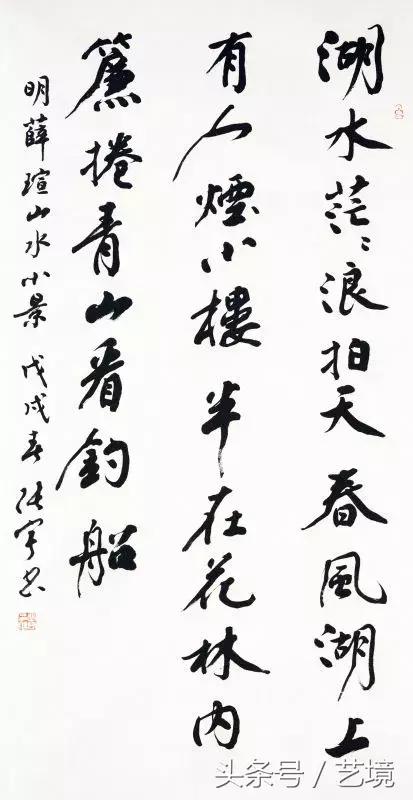 湖水茫々浪拍天春風湖上
有人煙小樓半在花林内
簾捲青山看釣船
明薛瑄山水小景 戊戌春 张
头条号 / 艺境